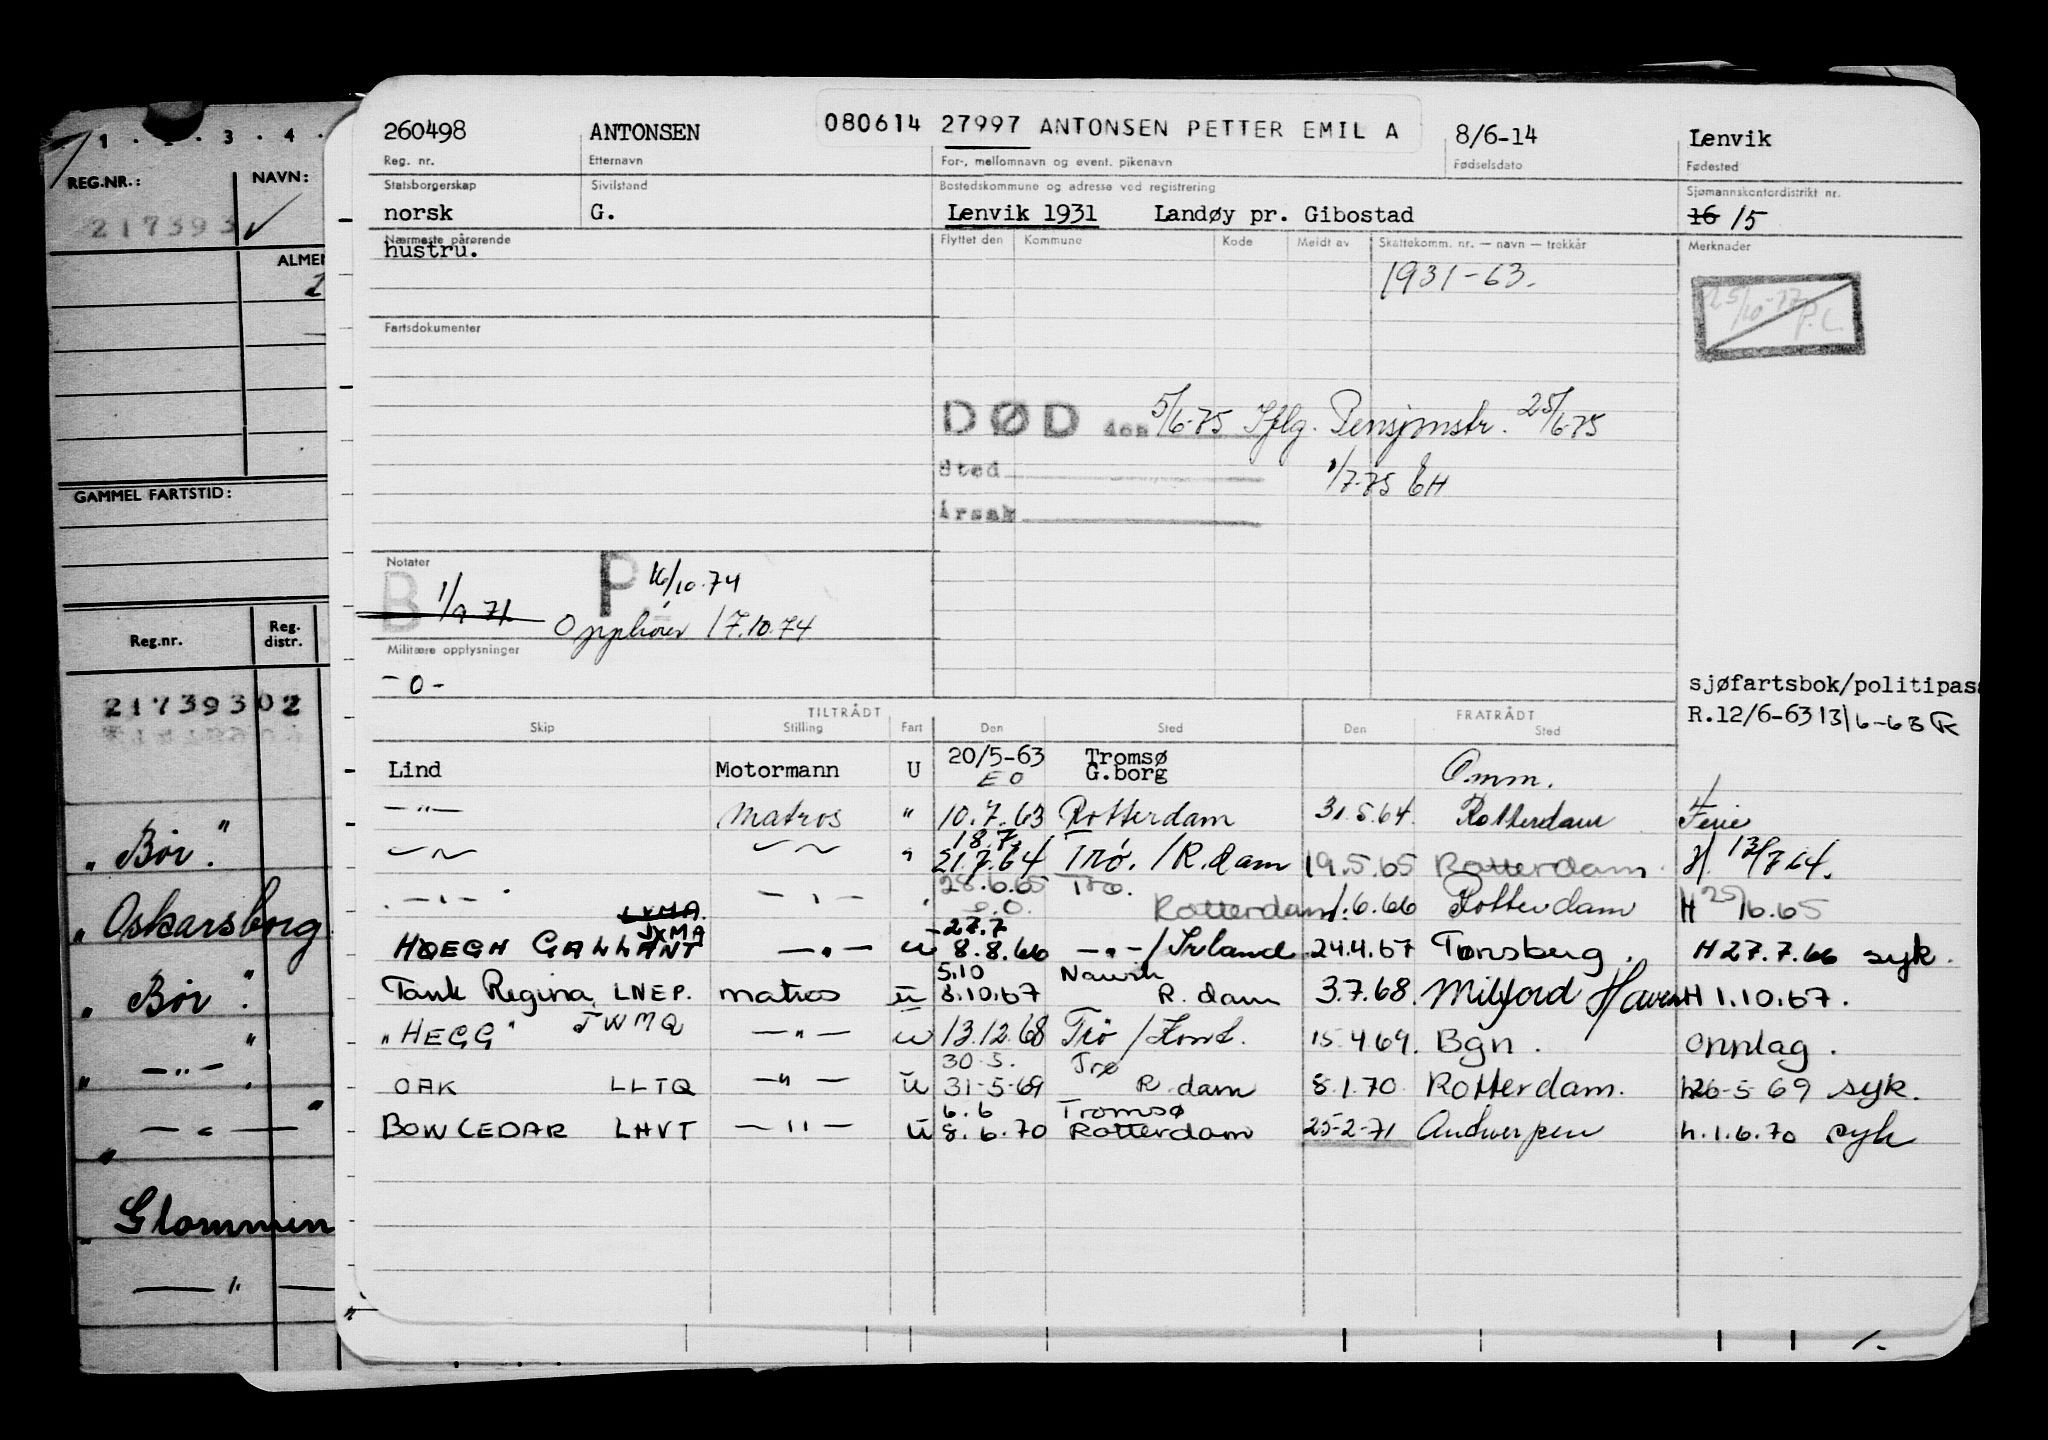 1 . . 3 . 4 .
REG.NR.: NAVN:
217393
ALMEN
2
GAMMEL FARTSTID:
Reg.nr. Reg. distr.
21739302
" Bør."
" Oskarsborg
" Bør."
" —"— "
" —"— "
Glommen
— " —
260498 ANTONSEN 080614 27997 ANTONSEN PETTER EMIL A 8/6-14 Lenvik
Reg. nr. Etternavn For-, mellomnavn og event. pikenavn Fødselsdato Fødested
Statsborgerskap Sivilstand Bostedskommune og adresse ved registrering Sjømannskontordistrikt nr.
norsk G. Lenvik 1931 Landøy pr. Gibostad 16 15
Nærmeste pårørende Flyttet den Kommune Kode Meldt av Skattekomm. nr. — navn — trekkår Merknader
hustru.
1931-63.
25/10-77 P.C.
Fartsdokumenter
DØD den 5/6-75 Iflg. Pensjonstr. 25/6-75
Sted 1/7-75 EH
Årsak
Notater
B 1/9 71. P 16/10.74
Opphører 17.10.74
Militære opplysninger
-0-
sjøfartsbok/politipass
R.12/6-63 13/6-63
TILTRÅDT FRATRÅDT
Skip Stilling Fart Den Sted Den Sted
Lind Motormann U 20/5-63 Tromsø
EO G.borg Omm.
—"— Matros " 10.7.63 Rotterdam 31.5.64. Rotterdam Ferie
18.7.
" 21.7.64 Trø. / R.dam 19.5.65 Rotterdam H 13/7 64.
28.6.65 Trø.
—"— —"— " Rotterdam 1.6.66 Rotterdam H 25/6.65
LXMA. 27.7
JXMA
HØEGH GALLANT —"— u 8.8.66 —"—/Irland 24.4.67 Tønsberg. H 27.7.66 syk.
5.10
Tank Regina LNEP. matros u 8.10.67 R.dam 3.7.68. Milford Haven H 1.10.67.
"HEGG" JWMQ —"— u 13.12.68 Trø / 15.4 69. Bgn. onnlag.
30.5. Trø
OAK LLTQ —"— u 31-5-69 R.dam 8.1.70. Rotterdam. h26-5 69 syk.
6.6 Tromsø
BOW CEDAR LHVT —"— u 8.6.70 Rotterdam 25-2-71 Antwerpen h.1.6.70 syk